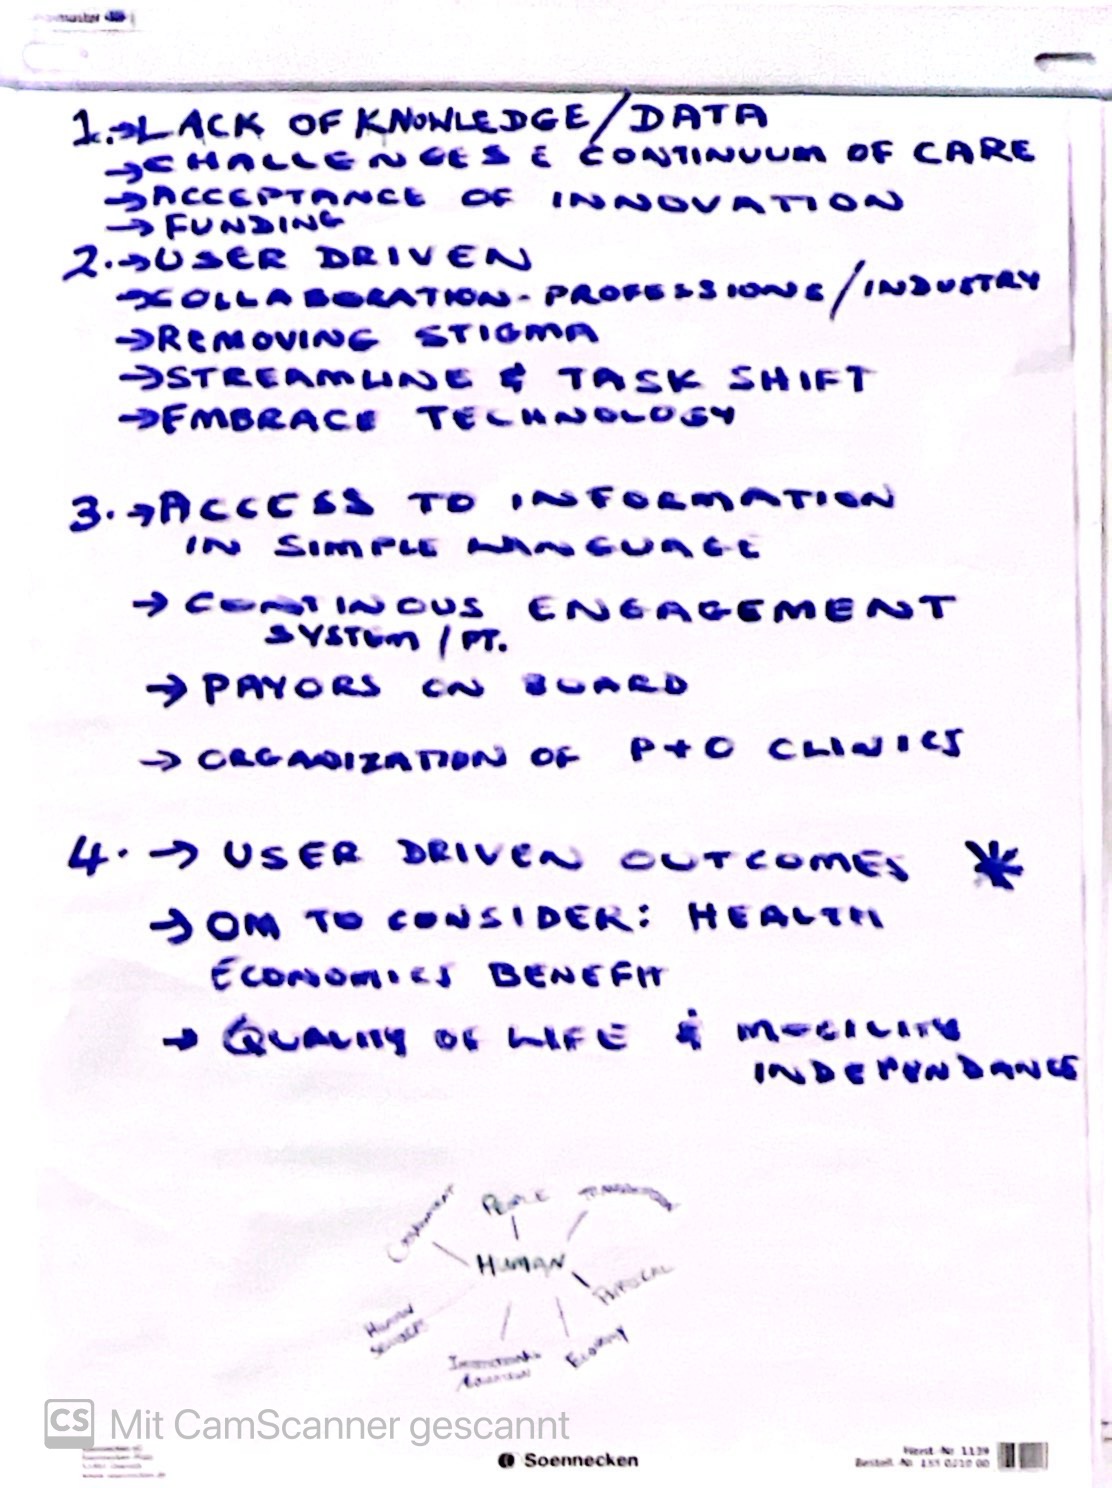 1.→LACK OF KNOWLEDGE/DATA
→CHALLENGES & CONTINUUM OF CARE
→ACCEPTANCE OF INNOVATION
→ FUNDING
2.→USER DRIVEN
→COLLABORATION- PROFESSIONS/INDUSTRY
→REMOVING STIGMA
→STREAMLINE & TASK SHIFT
→EMBRACE TECHNOLOGY
3.→ACCESS TO INFORMATION
IN SIMPLE LANGUAGE
→ CONTINOUS ENGAGEMENT
SYSTEM / PT.
→ PAYORS ON BOARD
→ ORGANIZATION OF P+O CLINICS
4. → USER DRIVEN OUTCOMES *
→ OM TO CONSIDER: HEALTH
ECONOMICS BENEFIT
→ QUALITY OF LIFE & MOBILITY
INDEPENDANCE
PEOPLE
HUMAN
PHYSICAL
HUMAN
ECONOMY
CS Mit CamScanner gescannt
Soennecken
Herst.-Nr. 1139